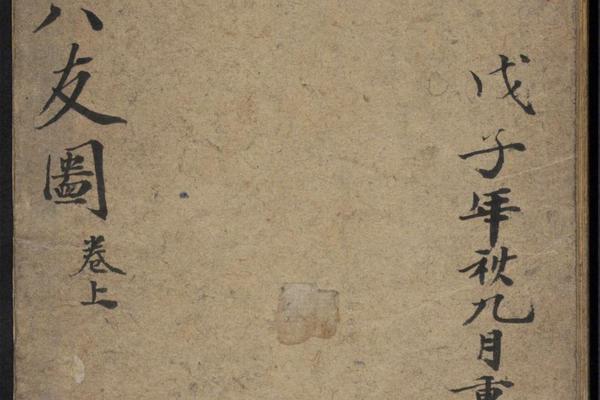 戊子年秋九月重
八友圖
卷上